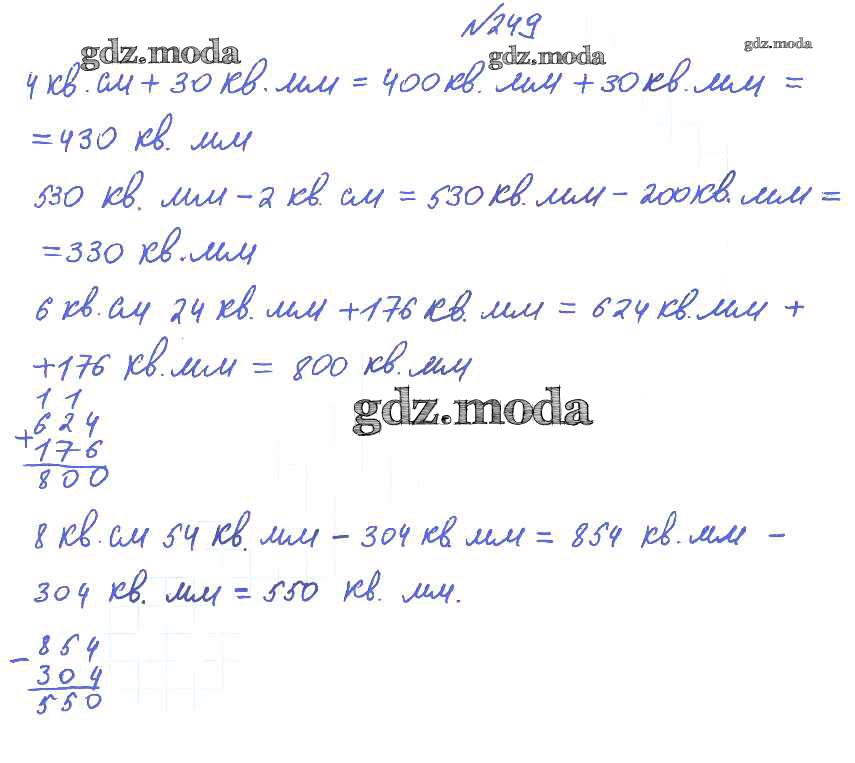 №249
gdz.moda gdz.moda gdz.moda
4 кв.см + 30 кв.мм = 400 кв. мм + 30 кв.мм =
= 430 кв. мм
530 кв. мм - 2 кв. см = 530 кв. мм - 200 кв. мм =
= 330 кв.мм
6 кв.см 24 кв. мм + 176 кв. мм = 624 кв.мм +
+ 176 кв.мм = 800 кв.мм
1 1
gdz.moda
624
+
176
800
8 кв.см 54 кв. мм - 304 кв мм = 854 кв.мм -
304 кв. мм = 550 кв. мм.
854
-
304
550